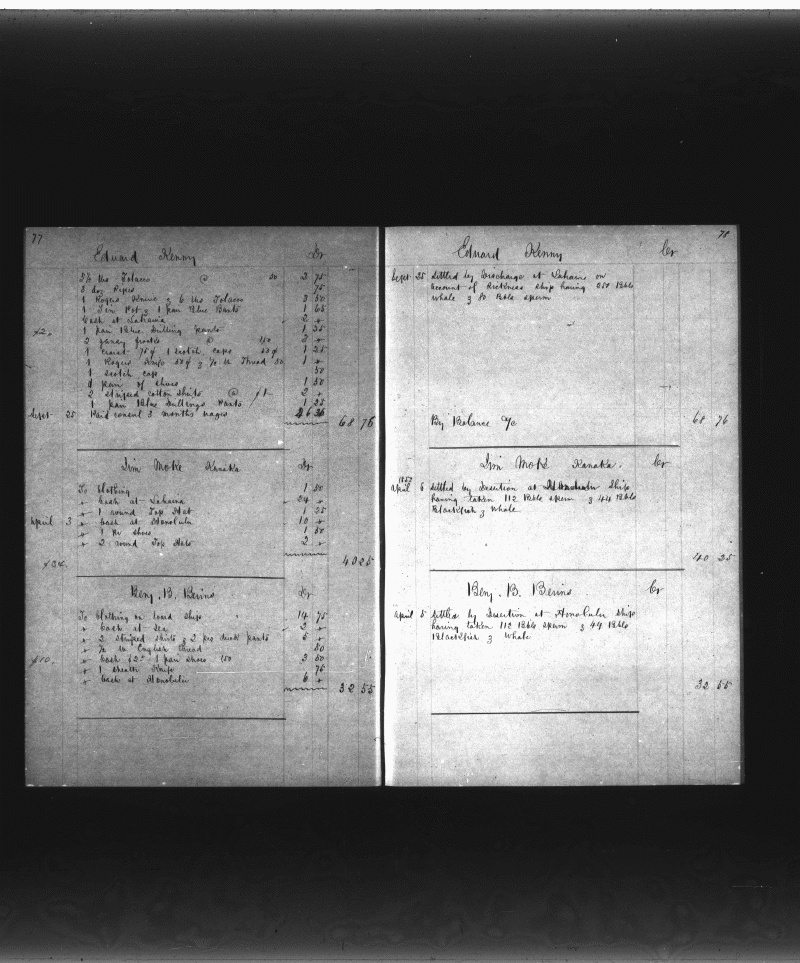 77
Edward Kenny Dr
5½ lbs Tobacco @ 50 2 75
3 doz Pipes 75
1 Rogers Knive & 6 lbs Tobacco 3 50
1 Tin Pot & 1 pair Blue Pants 1 65
Cash at Lahaina 2 "
x2. 1 pair Blue Drilling pants 1 25
2 fancy frocks @ 100 2 "
1 75¢ 1 scotch caps 50¢ 1 25
1 Rogers Knife 50¢ & ½ lb Thread 50 1 "
1 scotch cap 50
1 pair of shoes 1 50
2 striped cotton shirts @ $1- 2 "
1 pair Blue Drillings Pants 1 25
Sept 25 Paid consul 3 months wages 46 36
68 76
Jim Moke Kanaka Dr
To Clothing 1 50
" Cash at Lahaina 24 "
" 1 round Top Hat 1 25
April 3 " Cash at Honolulu 10 "
" 1 Pr shoes 1 50
" 2 round Top Hats 2 "
x34. 40 25
Benj. B. Berins Dr
To Clothing on board ship 14 75
" Cash at Sea 2 "
" 2 striped shirts & 2 prs duck pants 5 "
" ½ lb English Thread 50
x10. " Cash $2- 1 pair shoes 150 3 50
" 1 sheath Knife 75
" Cash at Honolulu 6 "
32 55
78
Edward Kenny Cr
Sept 25 Settled by Discharge at Lahaina on
account of Sickness ship having 250 Bbls
whale & 80 Bbls sperm
By Balance a/c 68 76
Jim Moke Kanaka. Cr
1852
April 6 Settled by Desertion at Honolulu Ship
having taken 112 Bbls sperm & 44 Bbls
Blackfish & Whale
40 25
Benj. B. Berins Cr
April 5 Settled by Desertion at Honolulu Ship
having taken 112 Bbls sperm & 44 Bbls
Blackfish & Whale
32 55